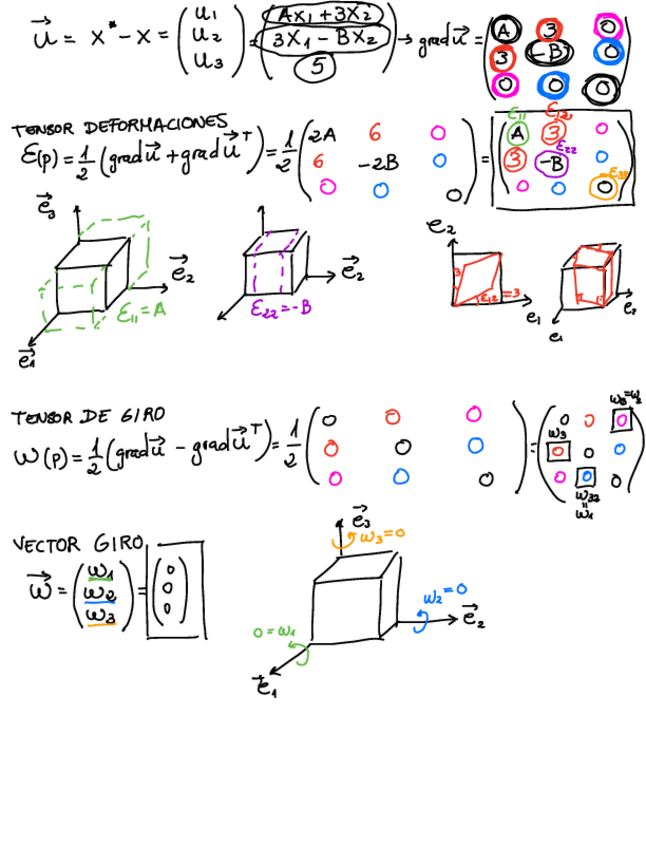 u⃗ = x* - x = (u1 u2 u3) = (Ax1 + 3x2 3x1 - Bx2 5) → grad u⃗ = (A 3 0 3 -B 0 0 0 0)
TENSOR DEFORMACIONES
E(p) = 1/2 (grad u⃗ + grad u⃗ᵀ) = 1/2 (2A 6 0 6 -2B 0 0 0 0) = (A 3 0 3 -B 0 0 0 0)
E11 E12 E22 =E33
e⃗3 e⃗2 e⃗1 E11 = A
e⃗2 E22 = -B
e2 e1 3 E12 = 3
e1 e2
TENSOR DE GIRO
W(p) = 1/2 (grad u⃗ - grad u⃗ᵀ) = 1/2 (0 0 0 0 0 0 0 0 0) = (0 0 0 0 0 0 0 0 0)
ω3 ω32 = ω1
VECTOR GIRO
ω⃗ = (ω1 ω2 ω3) = (0 0 0)
e⃗3 ω3=0
ω2=0 e⃗2
0=ω1 e⃗1